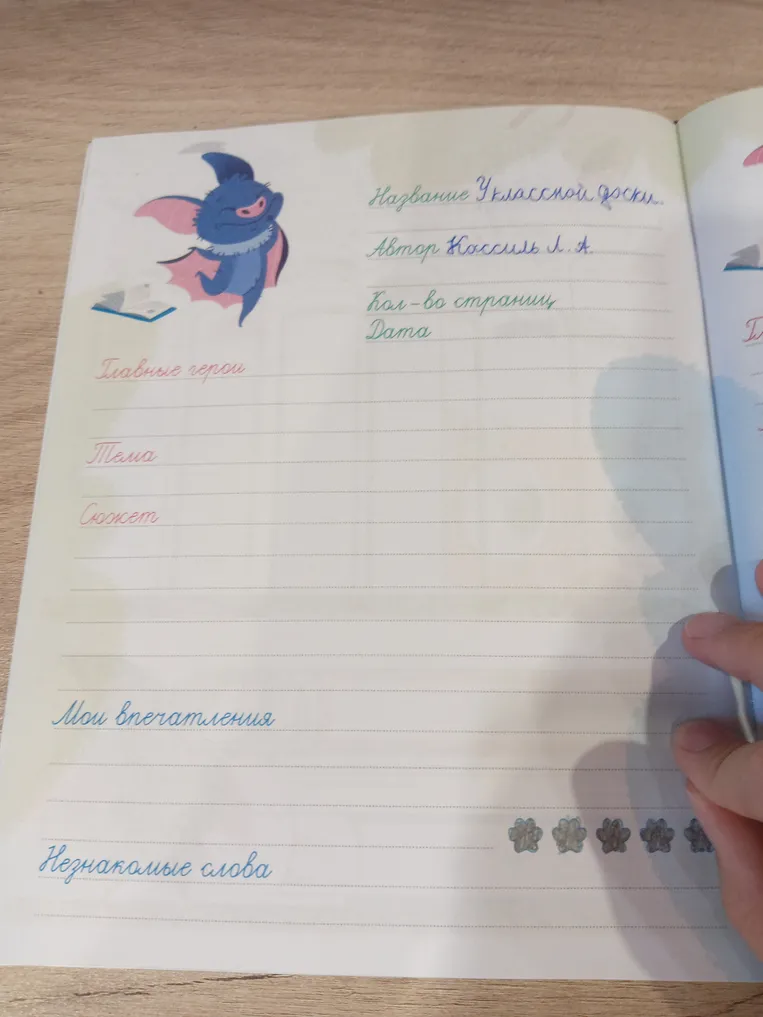 Название У классной доски.
Автор Кассиль Л. А.
Кол-во страниц
Дата
Главные герои
Тема
Сюжет
Мои впечатления
Незнакомые слова